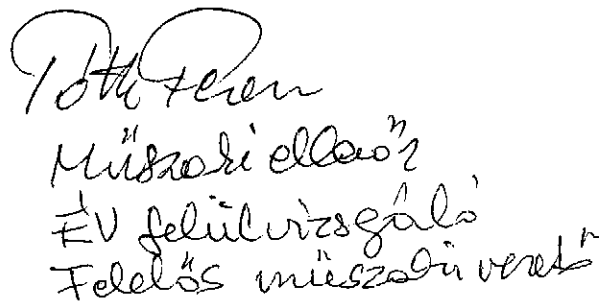 Tóth Ferenc
Műszaki ellenőr
ÉV felülvizsgáló
Felelős műszaki vezető